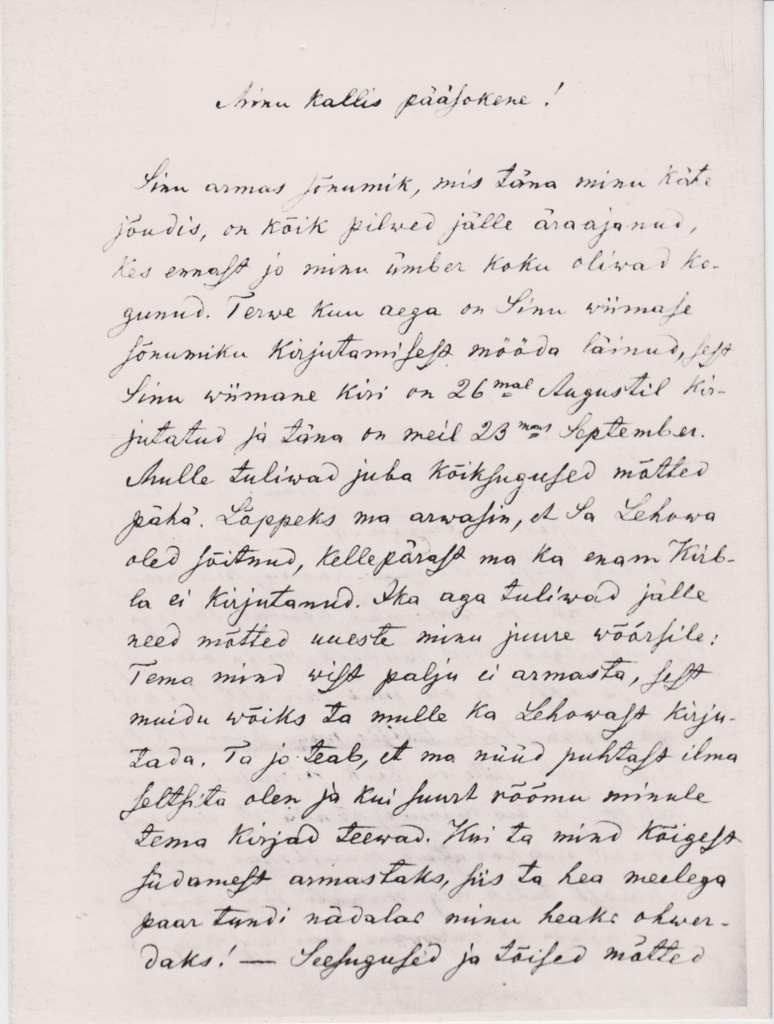 Minu kallis pääsokene!
Sinu armas sõnumik, mis täna minu käte
jõudis, on kõik pilwed jälle äraajanud,
kes ennast jo minu ümber koku oliwad ko-
gunud. Terwe kuu aega on Sinu wiimase
sõnumiku kirjutamisest mööda läinud, sest
Sinu wiimane kiri on 26mal Augustil kir-
jutatud ja täna on meil 23mas September.
Mulle tuliwad juba kõiksugused mõtted
pähä. Lõppeks ma arwasin, et Sa Lehowa
oled sõitnud, kellepärast ma ka enam Kirb-
la ei kirjutanud. Ika aga tuliwad jälle
need mõtted uueste minu juure wõõrsile:
Tema mind wist palju ei armasta, sest
muidu wõiks ta mulle ka Lehowast kirju-
tada. Ta jo teab, et ma nüüd puhtast ilma
seltsita olen ja kui suurt rõõmu minule
tema kirjad teewad. Kui ta mind kõigest
südamest armastaks, siis ta hea meelega
paar tundi nädalas minu heaks ohwer-
daks! — Seesugused ja tõised mõtted